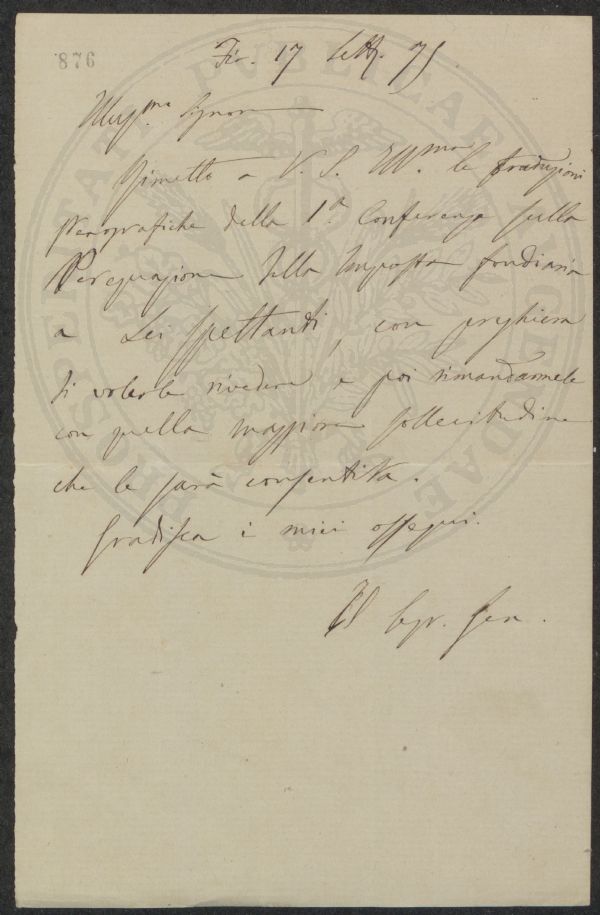 876
Fir. 17 Sett. 75
Illus.mo Signore
Rimetto a V. S. Ill.ma le traduzioni
stenografiche della 1a Conferenza sulla
Perequazione della Imposta fondiaria
a Lei spettanti, con preghiera
di volerle rivedere e poi rimandarmele
con quella maggiore sollecitudine
che le sarà consentita.
Gradisca i miei ossequi.
Il Segr. Gen.
PROSPERITATI PUBLICAE AUGENDAE